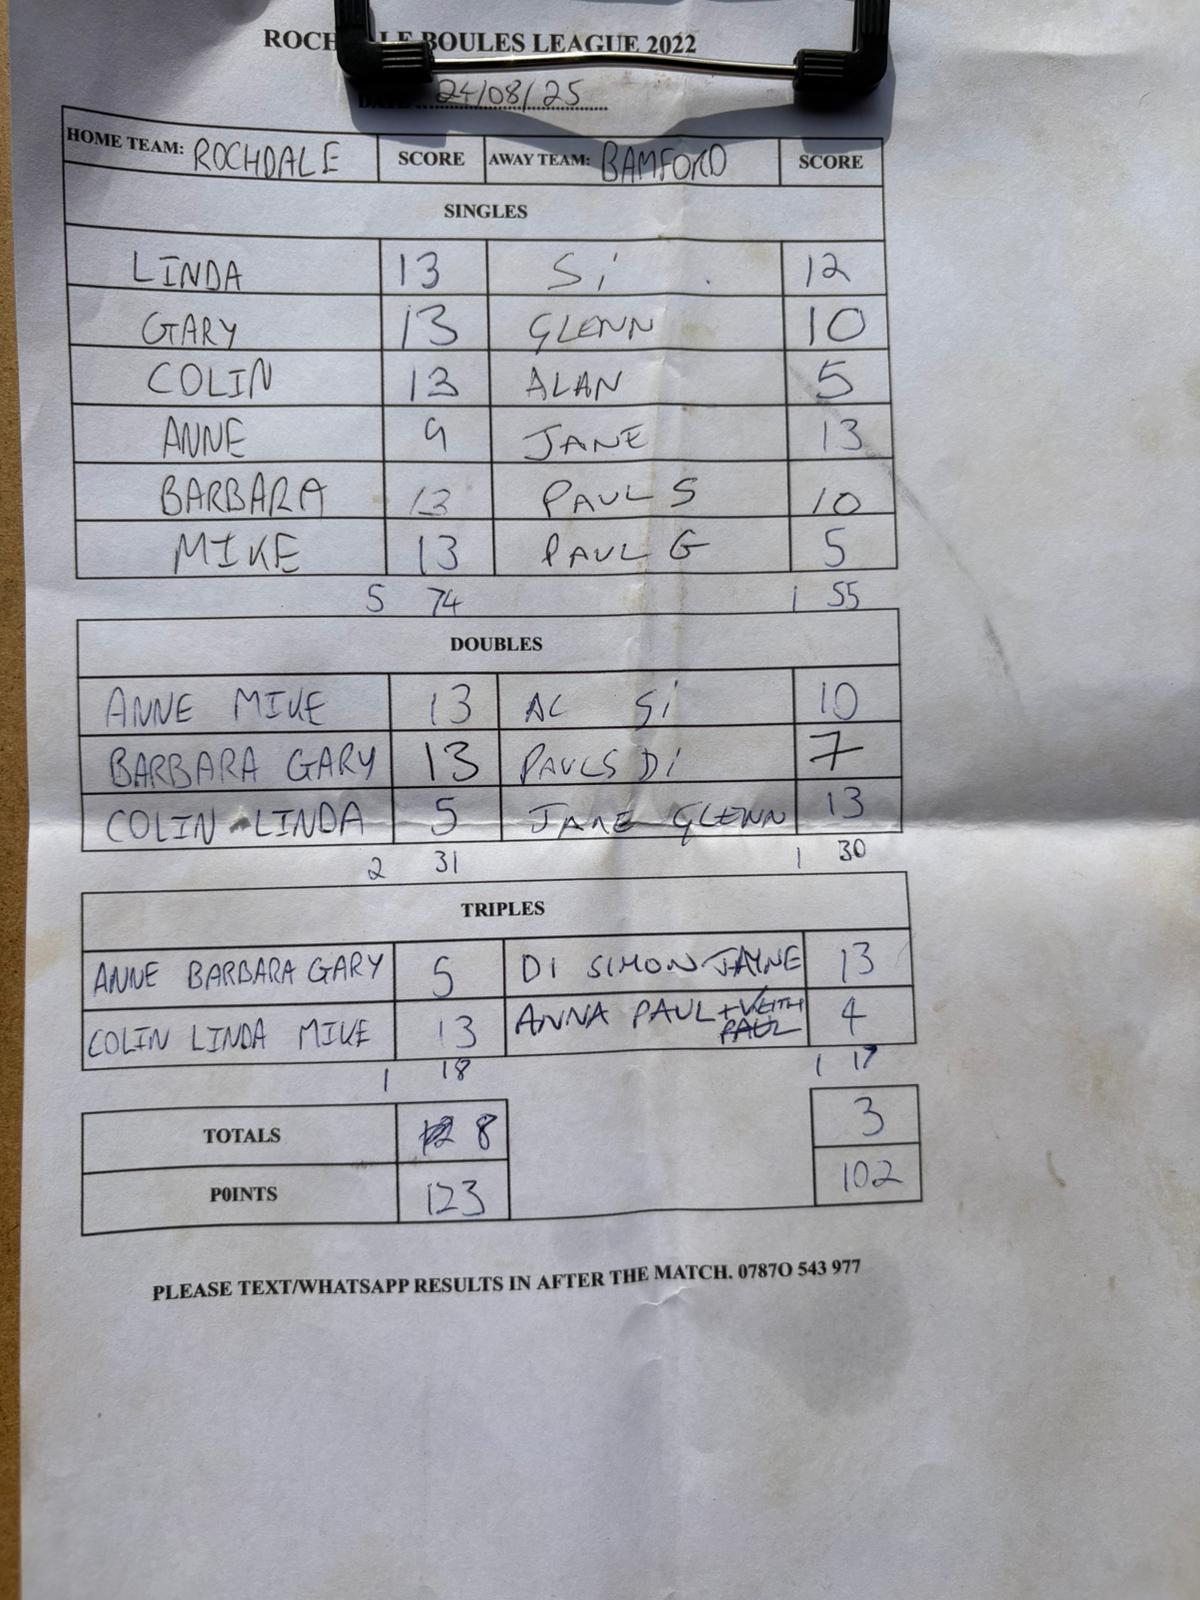 ROCHDALE BOULES LEAGUE 2022
DATE 24/08/25
HOME TEAM: ROCHDALE SCORE AWAY TEAM: BAMFORD SCORE
SINGLES
LINDA 13 Si 12
GARY 13 GLENN 10
COLIN 13 ALAN 5
ANNE 9 JANE 13
BARBARA 13 PAUL S 10
MIKE 13 PAUL G 5
5 74 1 55
DOUBLES
ANNE MIKE 13 AL Si 10
BARBARA GARY 13 PAULS Di 7
COLIN LINDA 5 JANE GLENN 13
2 31 1 30
TRIPLES
ANNE BARBARA GARY 5 DI SIMON JAYNE 13
COLIN LINDA MIKE 13 ANNA PAUL + KEITH 4
PAUL
1 18 1 17
TOTALS 8 3
P0INTS 123 102
PLEASE TEXT/WHATSAPP RESULTS IN AFTER THE MATCH. 0787O 543 977